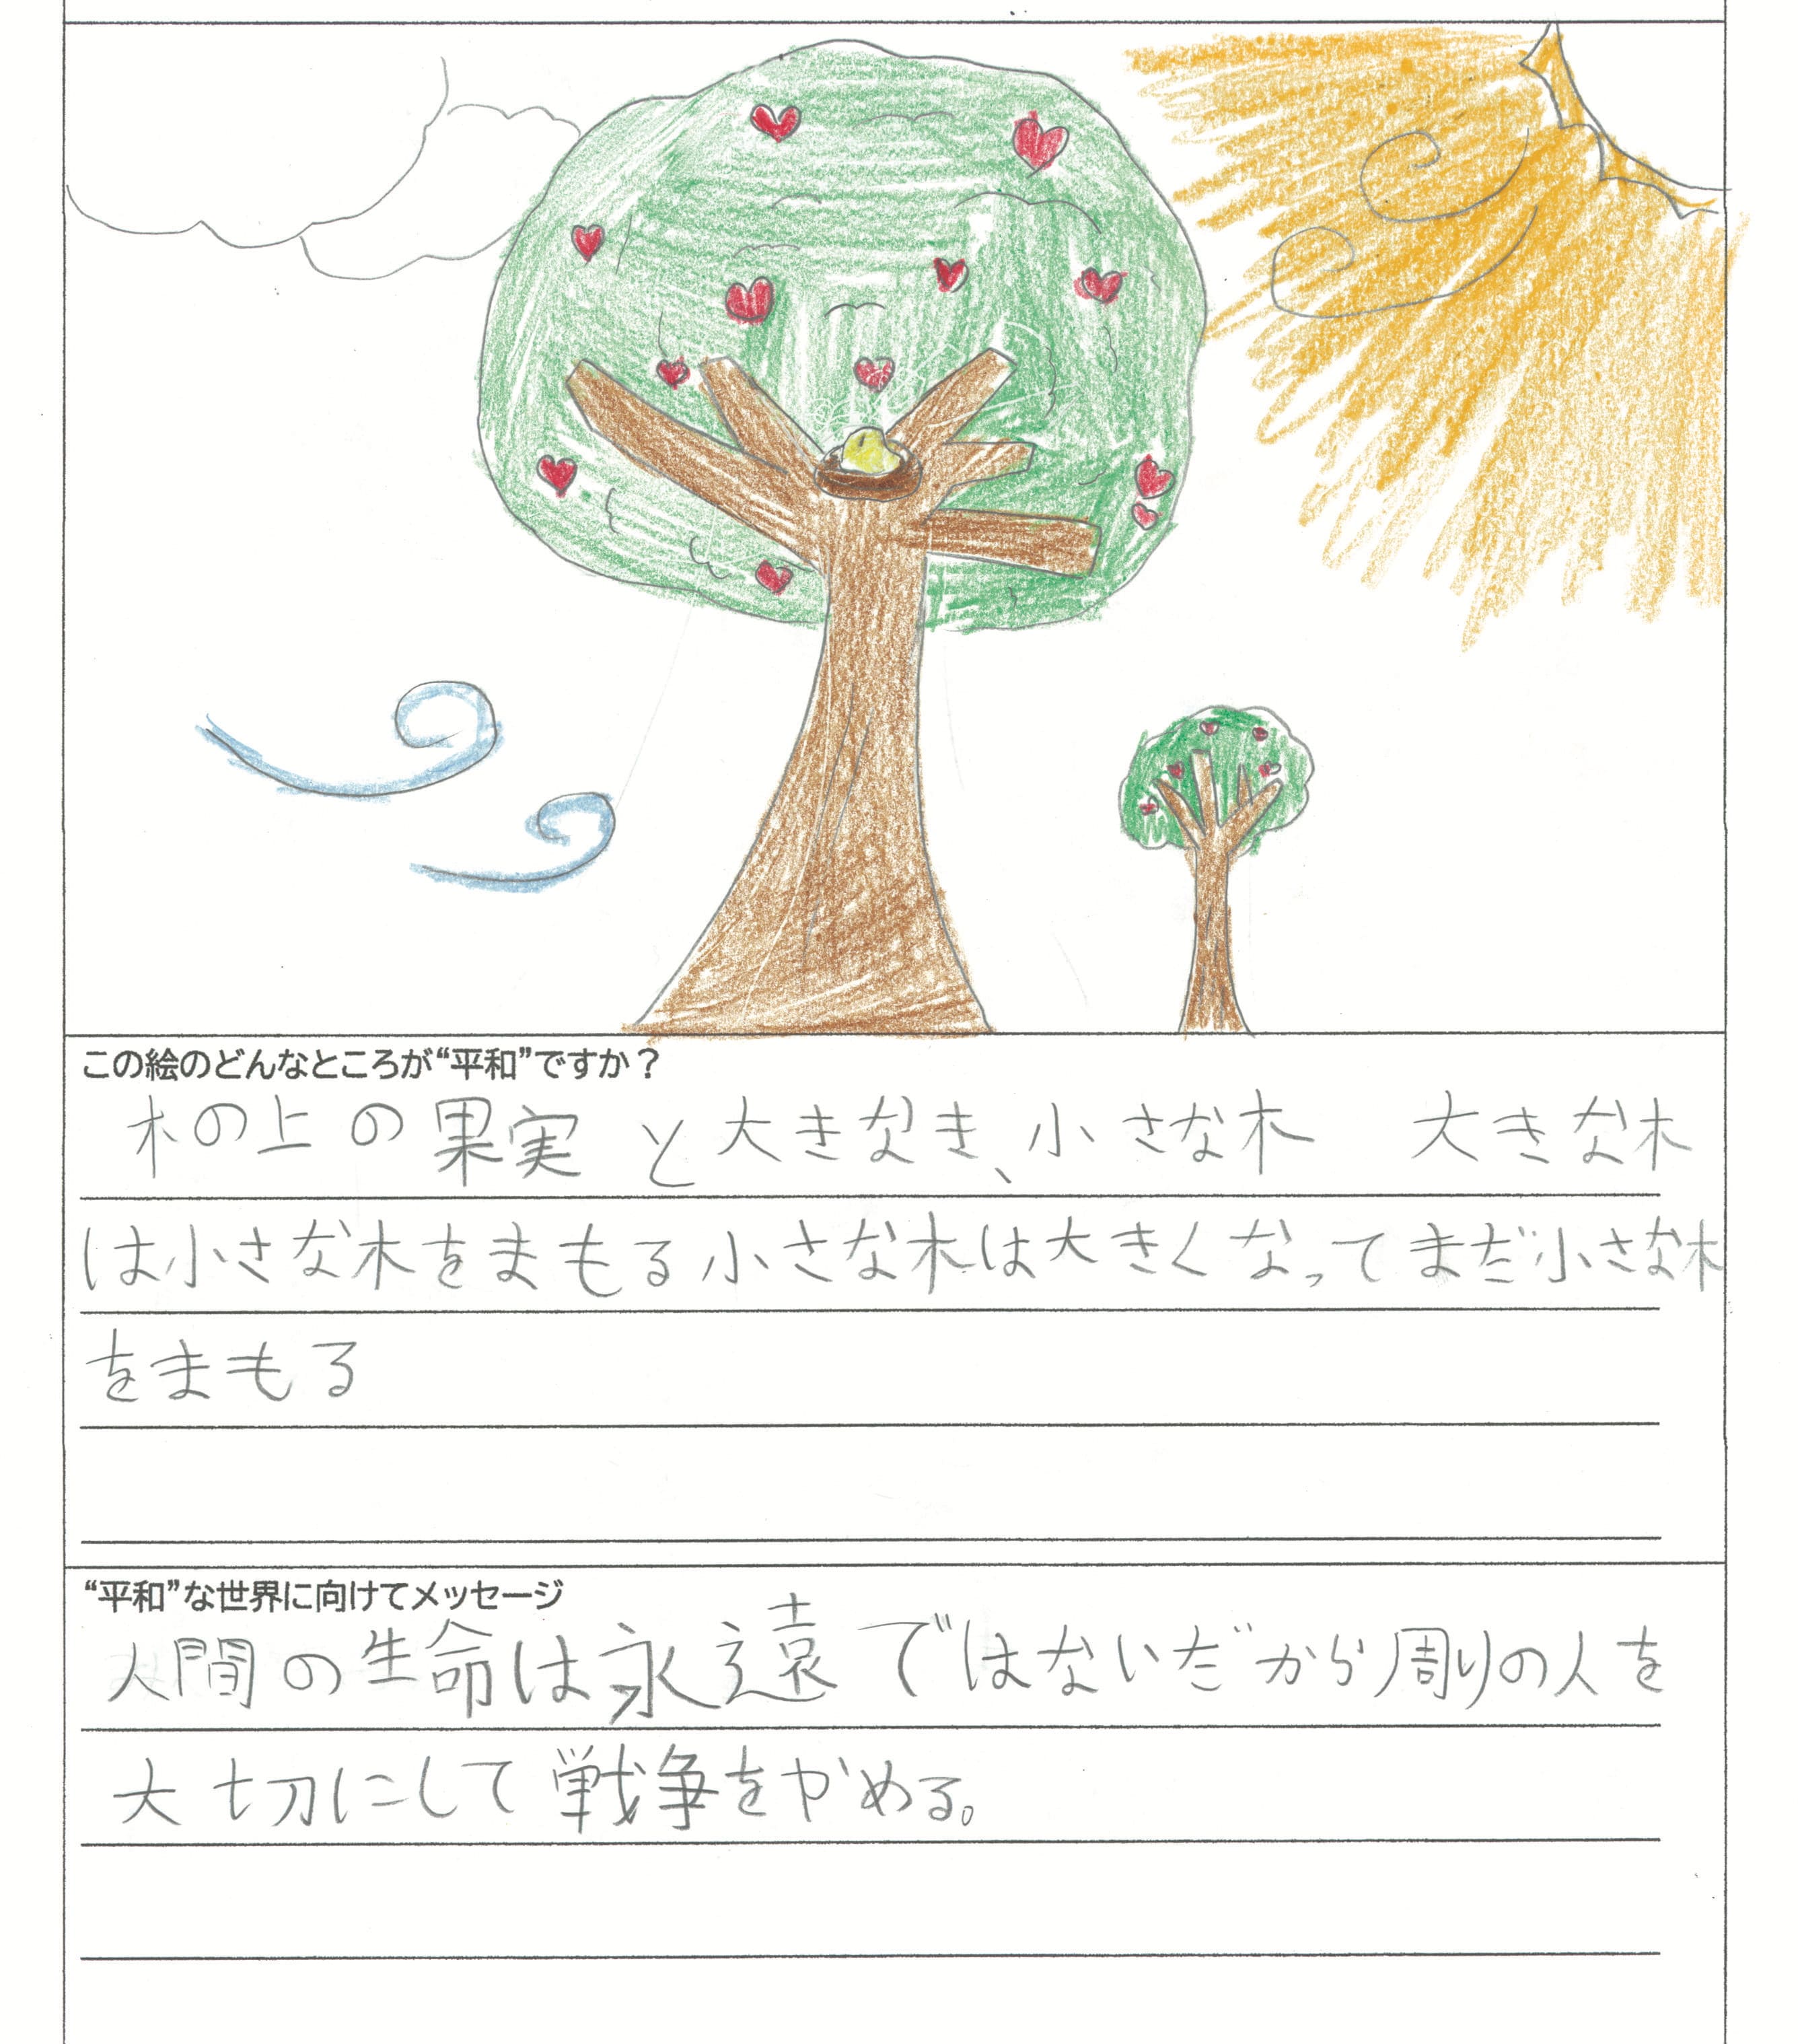 この絵のどんなところが“平和”ですか？
木の上の果実と大きなき、小さな木　大きな木
は小さな木をまもる小さな木は大きくなってまだ小さな木
をまもる
“平和”な世界に向けてメッセージ
人間の生命は永遠ではないだから周りの人を
大切にして戦争をやめる。